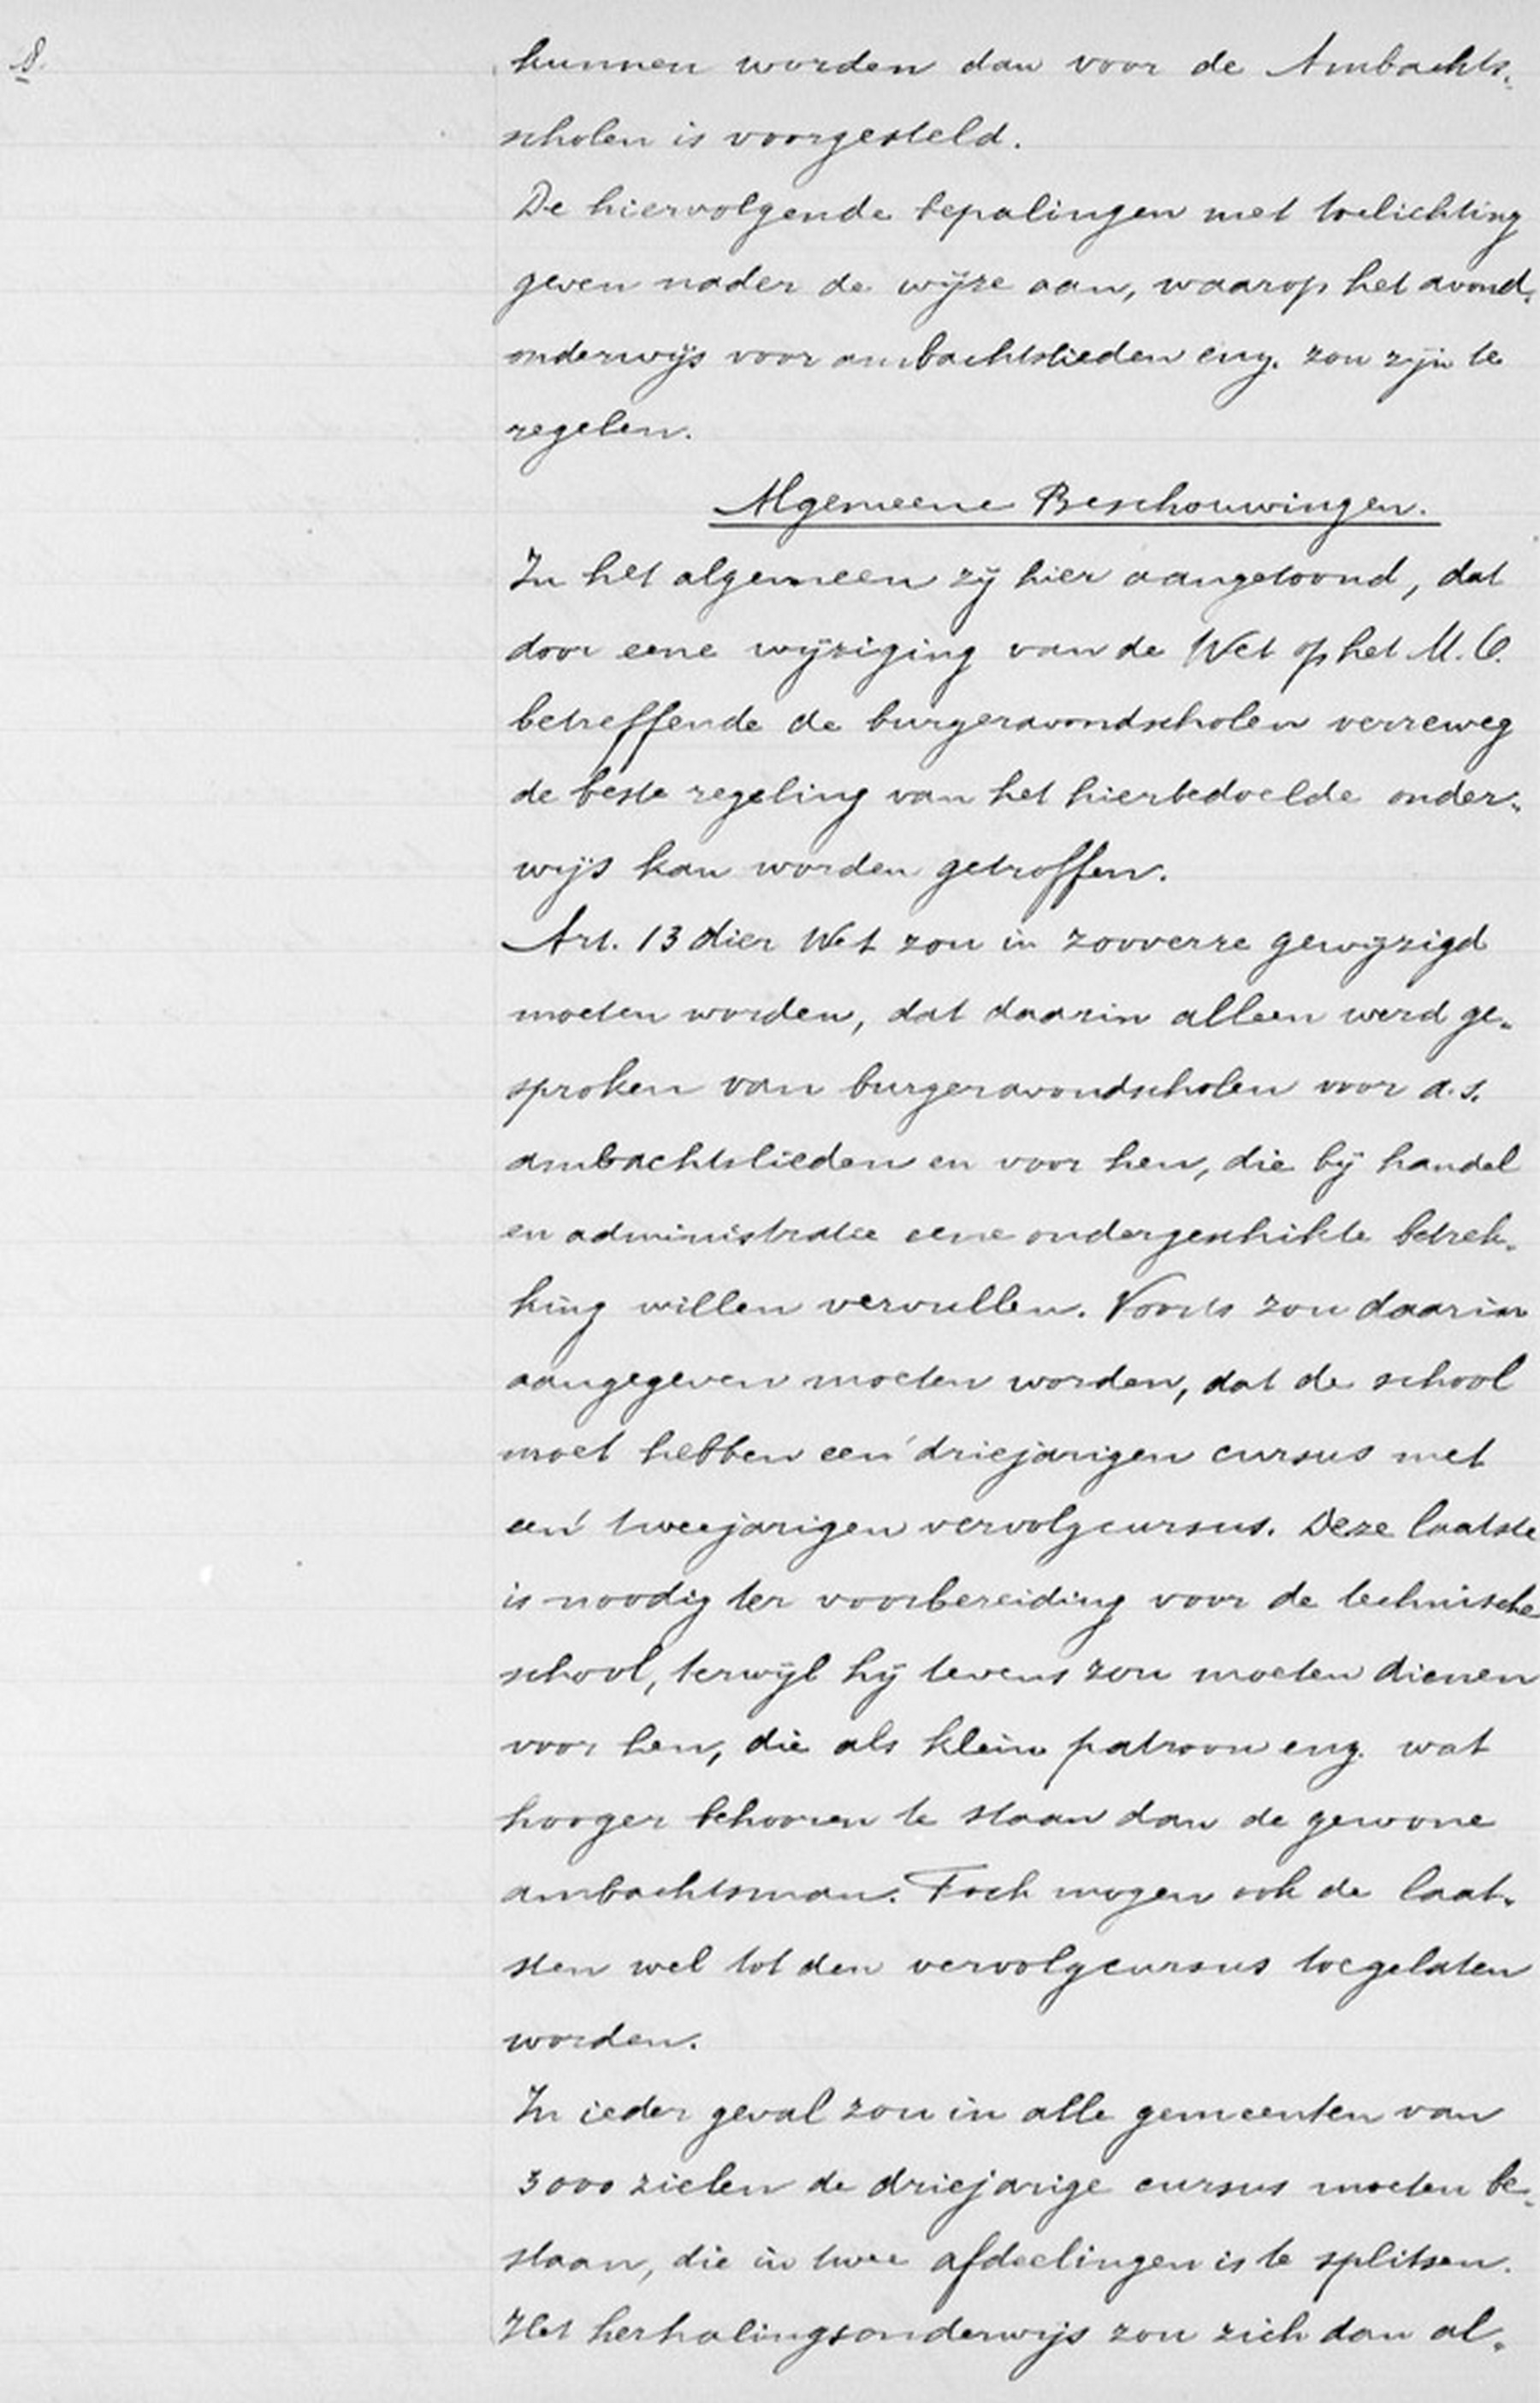 8.
kunnen worden dan voor de Ambachts-
scholen is voorgesteld.
De hiervolgende bepalingen met toelichting
geven nader de wijze aan, waarop het avond-
onderwijs voor ambachtslieden enz. zou zijn te
regelen.
Algemeene Beschouwingen.
In het algemeen zij hier aangetoond, dat
door eene wijziging van de Wet op het M.O.
betreffende de burgeravondscholen verreweg
de beste regeling van het hierbedoelde onder-
wijs kan worden getroffen.
Art. 13 dier Wet zou in zooverre gewijzigd
moeten worden, dat daarin alleen werd ge-
sproken van burgeravondscholen voor a.s.
ambachtslieden en voor hen, die bij handel
en administratie eene ondergeschikte betrek-
king willen vervullen. Voorts zou daarin
aangegeven moeten worden, dat de school
moet hebben een' driejarigen cursus met
een' tweejarigen vervolgcursus. Deze laatste
is noodig ter voorbereiding voor de technische
school, terwijl hij tevens zou moeten dienen
voor hen, die als klein patroon enz. wat
hooger behooren te staan dan de gewone
ambachtsman. Toch mogen ook de laat-
sten wel tot den vervolgcursus toegelaten
worden.
In ieder geval zou in alle gemeenten van
3000 zielen de driejarige cursus moeten be-
staan, die in twee afdeelingen is te splitsen.
Het herhalingsonderwijs zou zich dan al-